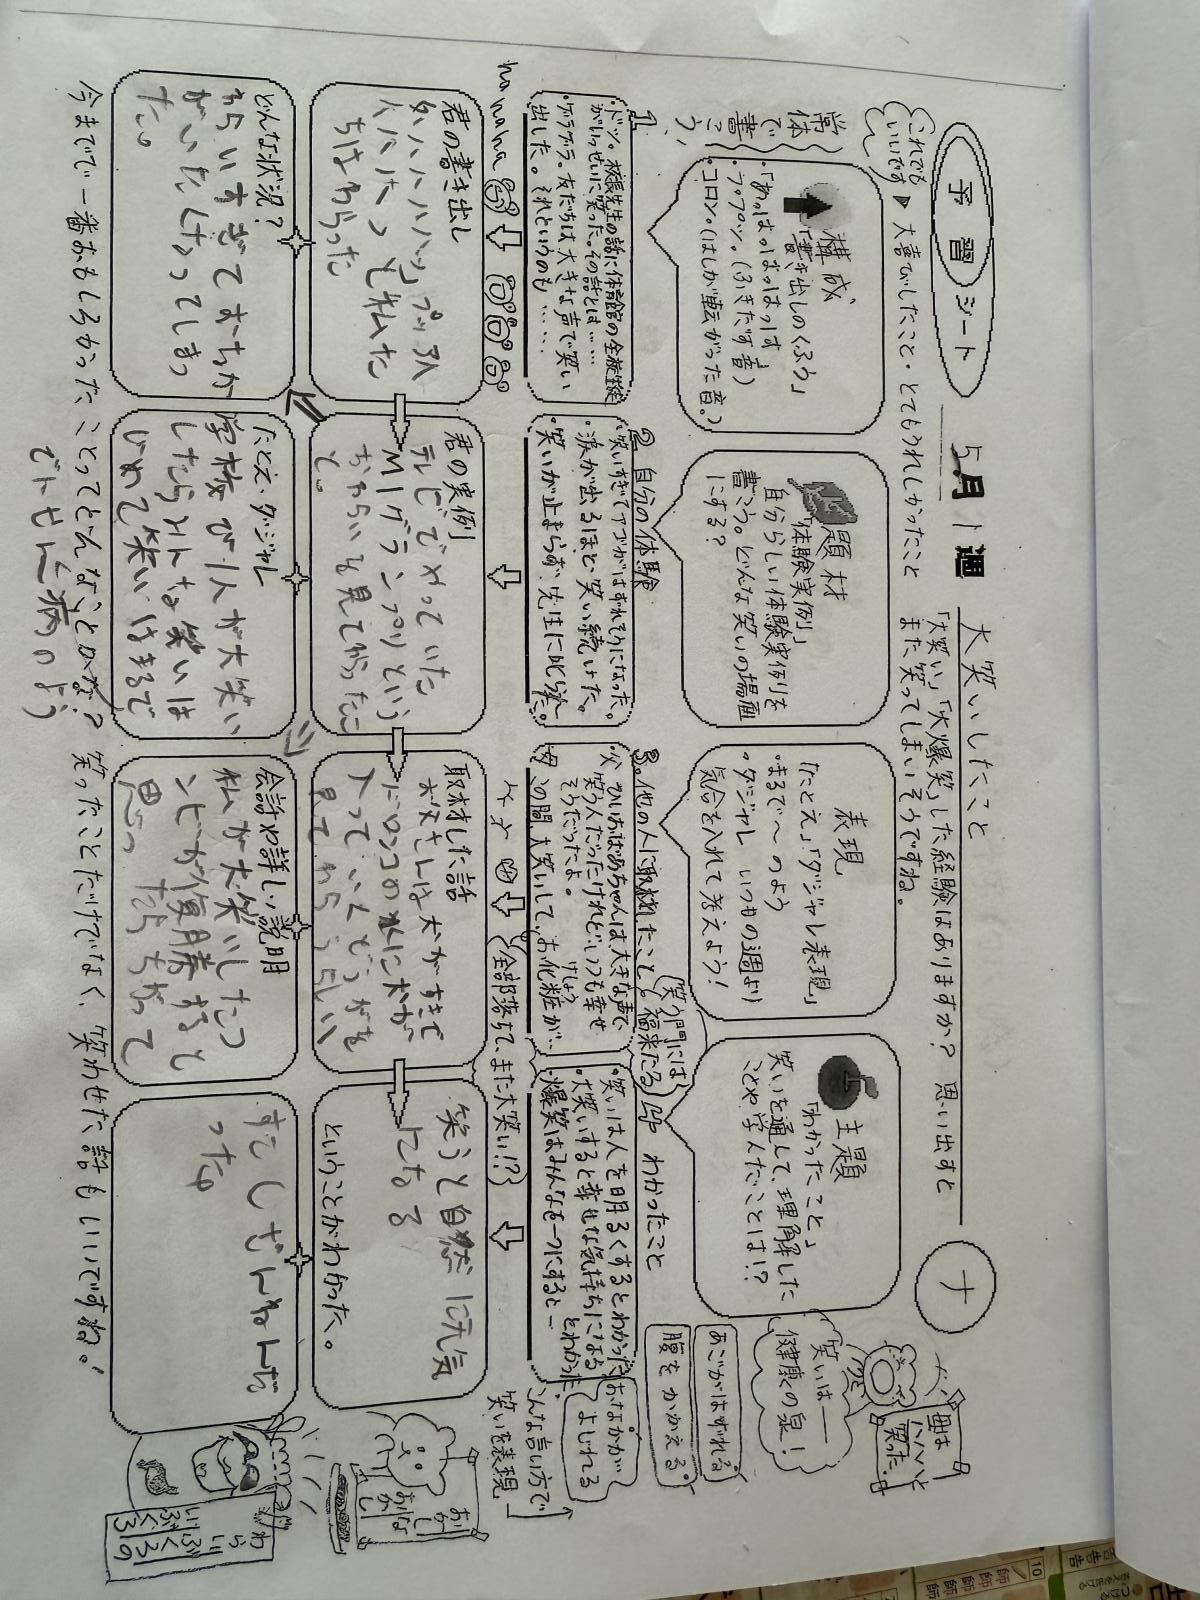 予習シート
5月1週
大笑いしたこと
ナ
これでもいいです
▶大喜びしたこと・とてもうれしかったこと
「大笑い」「大爆笑」した経験はありますか? 思い出すと
また笑ってしまいそうですね。
常体で書こう
構成
「書き出しのくふう」
・「あっはっはっはっは」
・プププッ。(ふきだす音)
・コロン。(はしが転がった音。)
題材
「体験実例」
自分らしい体験実例を
書こう。どんな笑いの場面
にする?
表現
「たとえ」「ダジャレ表現」
・まるで〜のよう
・ダジャレ いつもの週より
気合を入れて考えよう!
主題
「わかったこと」
笑いを通して、理解した
ことや学んだことは!?
母は
ハハハと
笑った。
笑いは―
健康の泉!
1.
・ドッ。校長先生の話に体育館の全校生徒
がいっせいに笑った。その話とは……
・ゲラゲラ。友だちは大きな声で笑い
出した。それというのも……
2 自分の体験
・笑いすぎてアゴがはずれそうになった。
・涙が出るほど、笑い続けた。
・笑いが止まらず、先生に叱られた。
3. 他の人に取材したこと
父 ひいおばあちゃんは大きな声で
笑う人だったけれど、いつも幸せ
そうだったよ。
母 この間、大笑いして、お化粧が…
けしょう
全部落ちて、また大笑い!?
笑う門には
福来たる
4 わかったこと
・笑いは人を明るくするとわかった
・大笑いすると幸せな気持ちになる
・爆笑はみんなを一つにすると―
とわかった
あごがはずれる
腹をかかえる
おなかが
よじれる
こんな言い方で
笑いを表現
hahaha
君の書き出し
と私た
ちはわらった
君の実例
テレビでやっていた
M1グランプリという
おわらいを見てわらったこ
と。
取材した話
お父さんは犬がすきで
ドロンコの水に犬が
入っていくどうがを
見てわらうらしい
笑うと自然に元気
になる
ということがわかった。
どんな状況?
わらいすぎておちゃ
がいたくなってしまっ
た。
たとえ・ダジャレ
学校で1人が大笑い
したらみんな笑いは
じめて笑いはまるで
でんせん病のよう
会話や詳しい説明
私が大笑いしたっ
思ったらちがって
すこしざんねんだ
ったよ
おかし
おかしな
わらい
ぶくろ
今までで一番おもしろかったことってどんなことかな? 笑ったことだけでなく、笑わせた話もいいですね!